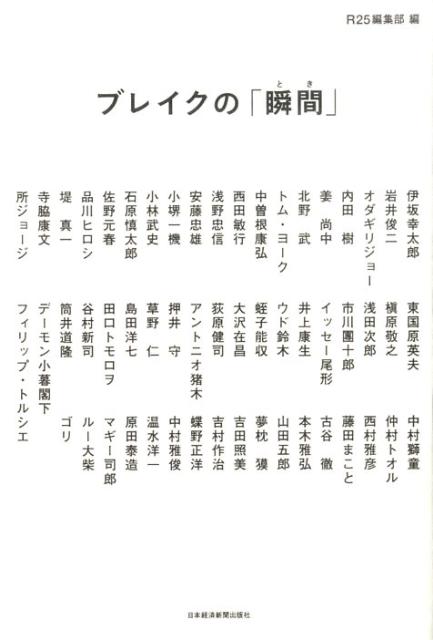 R25編集部 編
ブレイクの「瞬間」
とき
伊坂幸太郎
岩井俊二
オダギリジョー
内田 樹
姜 尚中
北野 武
トム・ヨーク
中曽根康弘
西田敏行
浅野忠信
安藤忠雄
小堺一機
小林武史
石原慎太郎
佐野元春
品川ヒロシ
堤 真一
寺脇康文
所ジョージ
東国原英夫
槇原敬之
浅田次郎
市川團十郎
イッセー尾形
井上康生
ウド鈴木
蛭子能収
大沢在昌
荻原健司
アントニオ猪木
押井 守
草野 仁
島田洋七
田口トモロヲ
谷村新司
筒井道隆
デーモン小暮閣下
フィリップ・トルシエ
中村獅童
仲村トオル
西村雅彦
藤田まこと
古谷 徹
本木雅弘
山田五郎
夢枕 獏
吉田照美
吉村作治
蝶野正洋
中村雅俊
温水洋一
原田泰造
マギー司郎
ルー大柴
ゴリ
日本経済新聞出版社